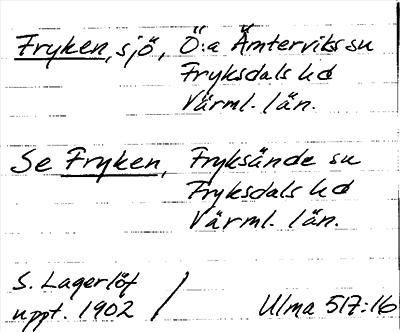 Fryken, sjö, Ö:a Ämterviks sn
Fryksdals hd
Värml. län.
Se Fryken, Fryksände sn
Fryksdals hd
Värml. län.
S. Lagerlöf /
uppt. 1902
Ulma 517:16